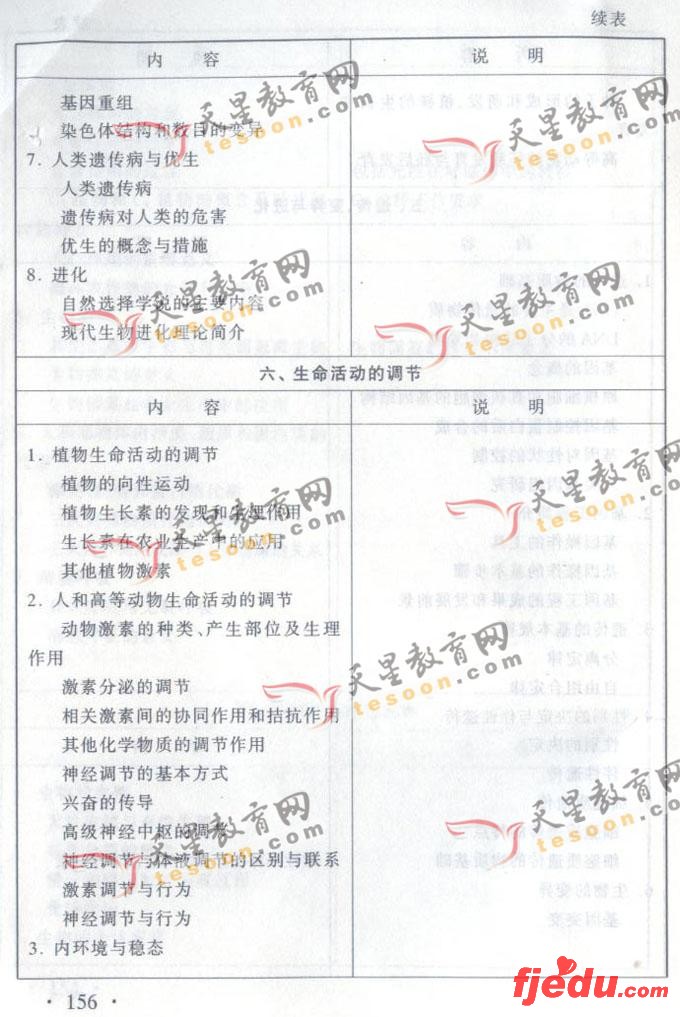 续表
内 容 说 明
基因重组
染色体结构和数目的变异
7. 人类遗传病与优生
人类遗传病
遗传病对人类的危害
优生的概念与措施
8. 进化
自然选择学说的主要内容
现代生物进化理论简介
六、生命活动的调节
内 容 说 明
1. 植物生命活动的调节
植物的向性运动
植物生长素的发现和生理作用
生长素在农业生产中的应用
其他植物激素
2. 人和高等动物生命活动的调节
动物激素的种类、产生部位及生理
作用
激素分泌的调节
相关激素间的协同作用和拮抗作用
其他化学物质的调节作用
神经调节的基本方式
兴奋的传导
高级神经中枢的调节
神经调节与体液调节的区别与联系
激素调节与行为
神经调节与行为
3. 内环境与稳态
· 156 ·
天星教育网
tesoon.com
天星教育网
tesoon.com
天星教育网
tesoon.com
天星教育网
tesoon.com
天星教育网
tesoon.com
天星教育网
tesoon.com
天星教育网
tesoon.com
天星教育网
tesoon.com
天星教育网
tesoon.com
fjedu.com